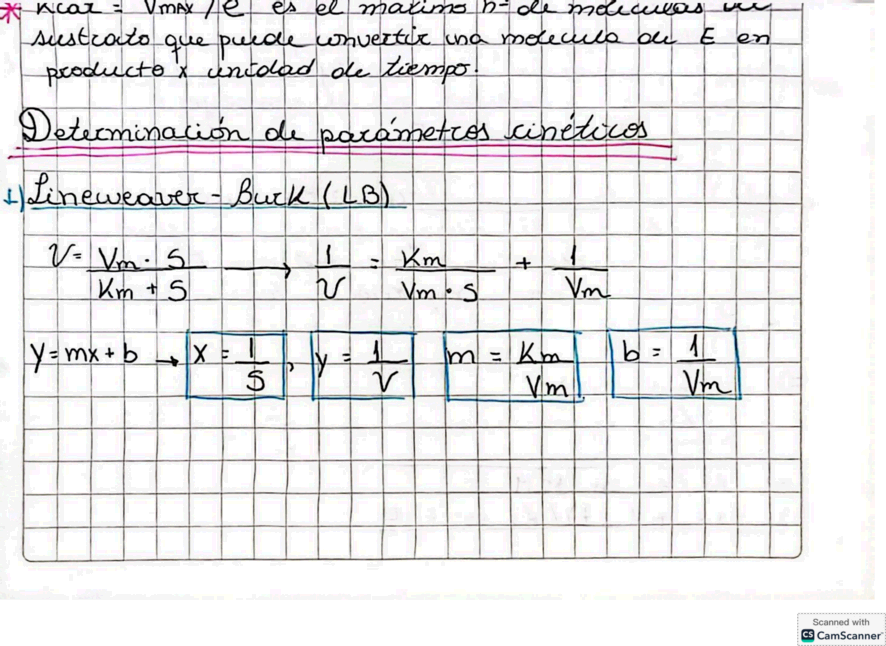 * Kcat = Vmax / e es el maximo nº de moleculas de
sustrato que puede convertir una molecula de E en
producto x unidad de tiempo.
Determinación de parámetros cinéticos
1) Lineweaver - Burk (LB)
V = Vm · S / Km + S → 1 / V = Km / Vm · S + 1 / Vm
y = mx + b → x = 1 / S , y = 1 / V m = Km / Vm b = 1 / Vm
Scanned with
CS CamScanner